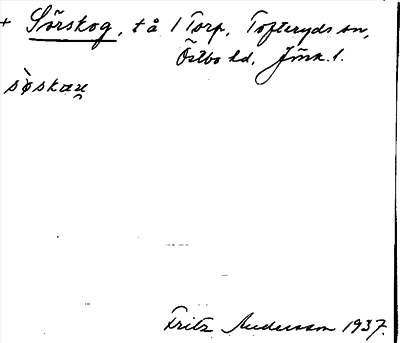 + Sörskog, t å 1 Torp, Tofteryds sn,
Östbo hd, Jönk. l.
sø̀skau̯
Fritz Andersson 1937.